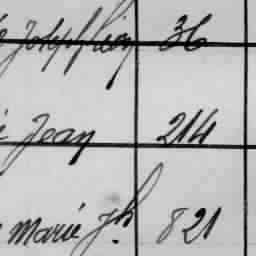 Joseph Léon 36
Jean 214
Marie Jh. 821